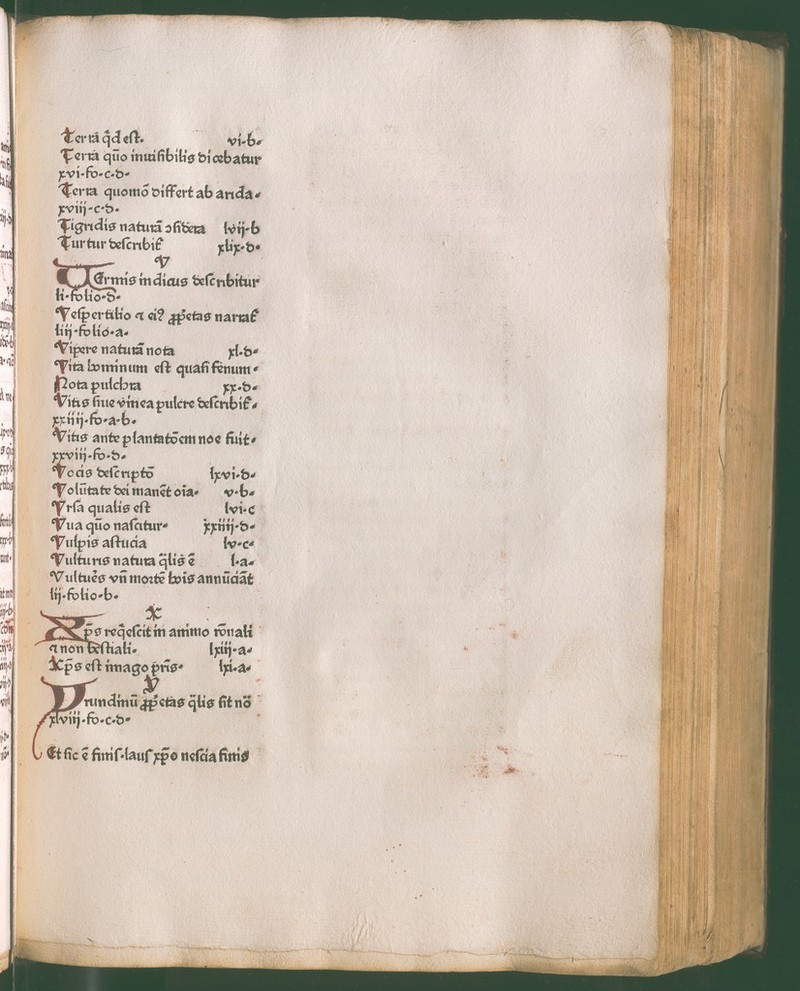 Terrā q̄d est. vi.b.
Terra quō inuisibilis dicebatur
xvi.fo.c.d.
Terra quomō differt ab arida.
xviij.c.d.
Tigridis naturā ↄsidera lvij.b
Turtur describit᷒ xlix.d.
V
VErmis indicus describitur
li.folio.d.
Vespertilio ⁊ eiꝰ ꝓp̄etas narrat᷒
liij.folio.a.
Vipere naturā nota xl.d.
Vita hominum est quasi fenum.
Nota pulchra xx.d.
Vitis siue vinea pulcre describit᷒.
xxiiij.fo.a.b.
Vitis ante plantatōem noe fuit.
xxviij.fo.d.
Vocis descriptō lxvi.d.
Volūtate dei manēt oīa. v.b.
Vrsa qualis est lvi.c
Vua quō nascitur. xxiiij.d.
Vulpis astucia lv.c.
Vulturis natura q̄lis ē l.a.
Vultures vn̄ mortē hoīs annūciāt
lij.folio.b.
X
Xp̄s req̄escit in animo rōnali
⁊ non bestiali. lxiij.a.
Xp̄s est imago pr̄is. lxi.a.
Y
Yrundinū ꝓp̄etas q̄lis sit nō
xlviij.fo.c.d.
Et sic ē finis.laus xp̄o nescia finis